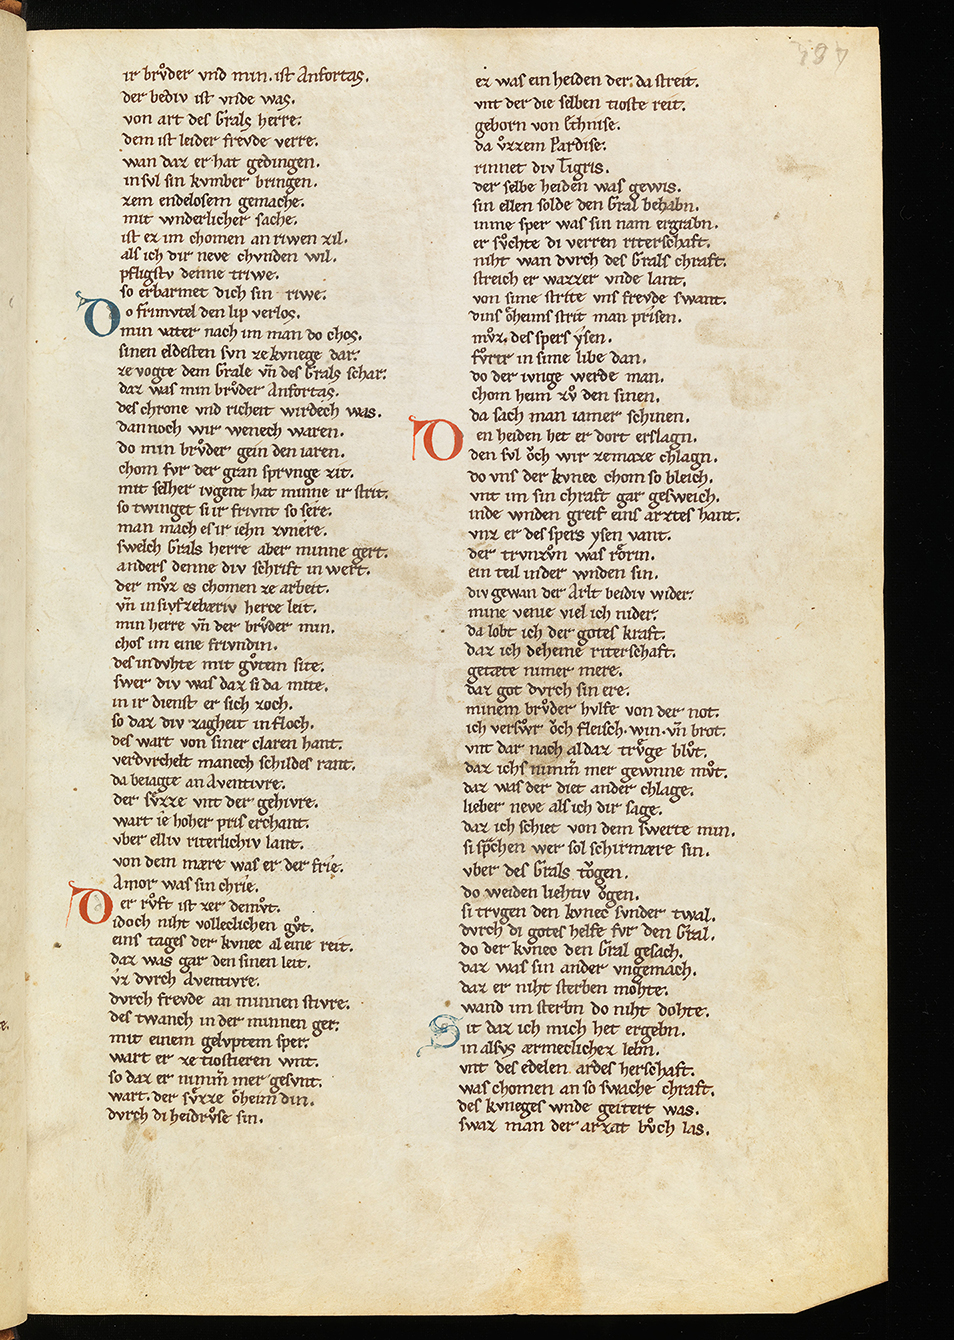 ir brůder vnd min. ist Anfortas.
der bediv ist vnde was.
von art des Grals herre.
dem ist leider frevde verre.
wan daz er hat gedingen.
in svl sin kvmber bringen.
zem endelosem gemache.
mit wnderlicher sache.
ist ez im chomen an riwen zil.
als ich dir neve chvnden wil.
pfligstv denne triwe.
so erbarmet dich sin riwe.
Do frimvtel den lip verlos.
min vater nach im man do chos.
sinen eldesten svn ze kvnege dar.
ze vogte dem Grale vn̄ des Grals schar.
daz was min brůder Anfortas.
des chrone vnd richeit wirdech was.
dannoch wir wenech waren.
do min brůder gein den iaren.
chom fvr der gran sprvnge zit.
mit selher ivgent hat minne ir strit.
so twinget si ir frivnt so sere.
man mach es ir iehn zvnere.
swelch Grals herre aber minne gert.
anders denne div schrift in wert.
der mv̊z es chomen ze arbeit.
vn̄ in sivfzebæriv herce leit.
min herre vn̄ der brůder min.
chos im eine frivndin.
des in dvhte mit gv̊tem site.
swer div was daz si da mite.
in ir dienst er sich zoch.
so daz div zagheit in floch.
des wart von siner claren hant.
verdvrchelt manech schildes rant.
da beiagte an Aventivre.
der sv̊zze vnt der gehivre.
wart ie hoher pris erchant.
vber elliv riterlichiv lant.
von dem mære was er der frie.
Amor was sin chrie.
Der rv̊ft ist zer demv̊t.
idoch niht volleclichen gv̊t.
eins tages der kvnec al eine reit.
daz was gar den sinen leit.
vz dvrch Aventivre.
dvrch frevde an minnen stivre.
des twanch in der minnen ger.
mit einem gelvptem sper.
wart er ze tiostieren wnt.
so daz er nimm̄ mer gesvnt.
wart. der sv̊zze ōheim din.
dvrch di heidrv̊se sin.
ez was ein heiden der da streit.
vnt der die selben tioste reit.
geborn von Ethnise.
da v̊zzem Pardise.
rinnet div Tigris.
der selbe heiden was gewis.
sin ellen solde den Gral behabn.
inme sper was sin nam ergrabn.
er sv̊chte di verren riterschaft.
niht wan dvrch des Grals chraft.
streich er wazzer vnde lant.
von sime strite vns frevde swant.
dins ōheims strit man prisen.
mv̊z. des spers ysen.
fv̊rter in sime libe dan.
do der ivnge werde man.
chom heim zv̊ den sinen.
da sach man iamer schinen.
Den heiden het er dort erslagn.
den svl ōch wir ze maze chlagn.
do vns der kvnec chom so bleich.
vnt im sin chraft gar gesweich.
inde wnden greif eins arztes hant.
vnz er des spers ysen vant.
der trvnzv̊n was rōrin.
ein teil in der wnden sin.
div gewan der Arzt beidiv wider.
mine venie viel ich nider.
da lobt ich der gotes kraft.
daz ich deheine riterschaft.
getæte nimer mere.
daz got dvrch sin ere.
minem brv̊der hvlfe von der not.
ich verswr ōch fleisch. win. vn̄ brot.
vnt dar nach al daz trv̊ge blv̊t.
daz ichs nimm̄ mer gewnne mv̊t.
daz was der diet ander chlage.
lieber neve als ich dir sage.
daz ich schiet von dem swerte min.
si sp̄chen wer sol schirmære sin.
vber des Grals tōgen.
do weiden liehtiv ōgen.
si trvgen den kvnec svnder twal.
dvrch di gotes helfe fvr den Gral.
do der kvnec den Gral gesach.
daz was sin ander vngemach.
daz er niht sterben mohte.
wand im sterbn do niht dohte.
Sit daz ich mich het ergebn.
in alsvs ærmeclichez lebn̄.
vnt des edelen ardes herschaft.
was chomen an so swache chraft.
des kvneges wnde geitert was.
swaz man der arzat bv̊ch las.